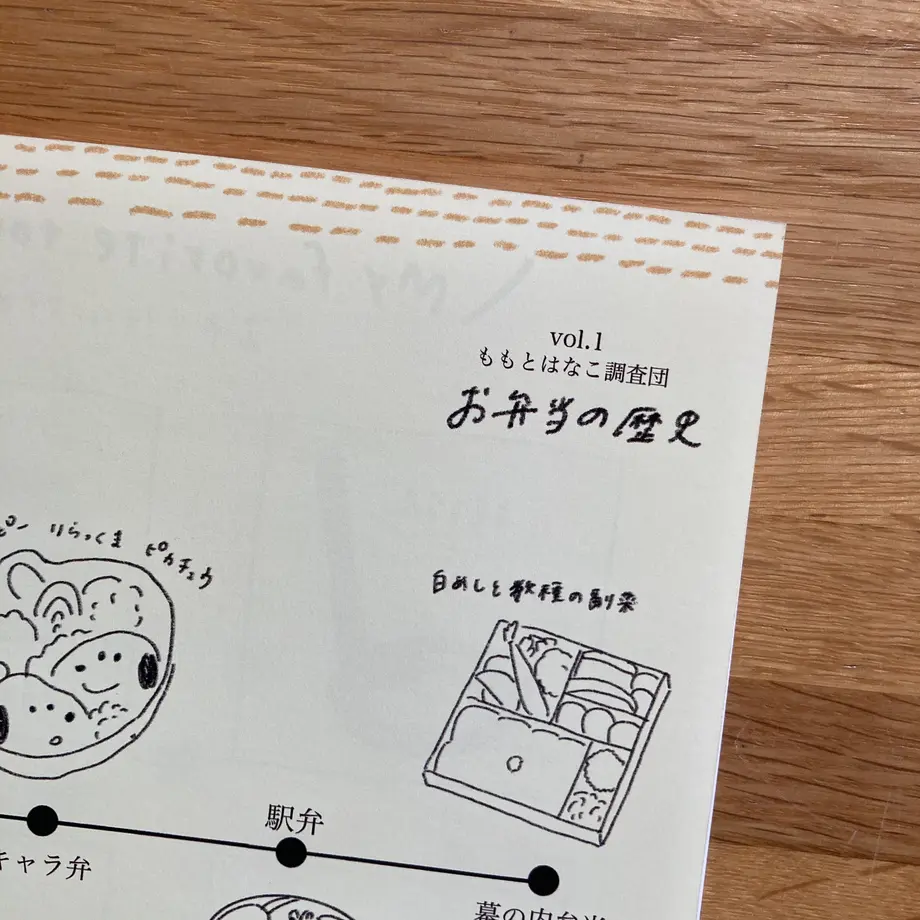 vol.1
ももとはなこ調査団
お弁当の歴史
りらっくま ピカチュウ
白めしと数種の副菜
駅弁
キャラ弁
幕の内弁当
My favorite